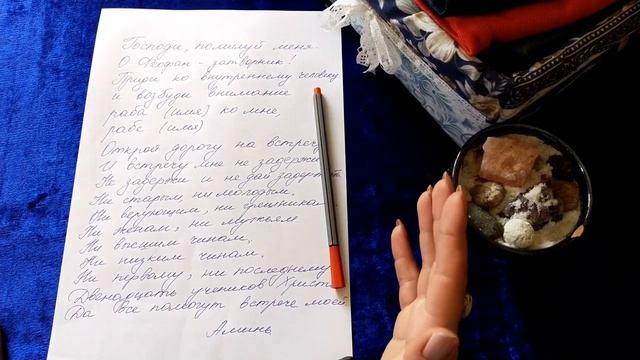 Господи, помилуй меня.
О Феофан - затворник!
Приди ко внутреннему человеку
и возбуди внимание
раба (имя) ко мне,
рабе (имя)
Открой дорогу на встречу
И встречу мне не задержи
Не задержи и не дай задержать
Ни старым, ни молодым,
Ни верующим, ни грешникам
Ни женам, ни мужьям
Ни высшим чинам,
Ни низким чинам.
Ни первому, ни последнему
Двенадцать учеников Христа
Да все помогут встрече моей
Аминь